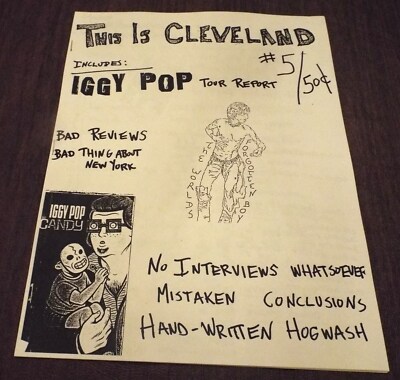 THIS IS CLEVELAND
#5/50¢
INCLUDES:
IGGY POP TOUR REPORT
BAD REVIEWS
BAD THING ABOUT
NEW YORK
THE WORLDS
FORGOTTEN BOY
IGGY POP
CANDY
NO INTERVIEWS WHATSOEVER
MISTAKEN CONCLUSIONS
HAND-WRITTEN HOGWASH